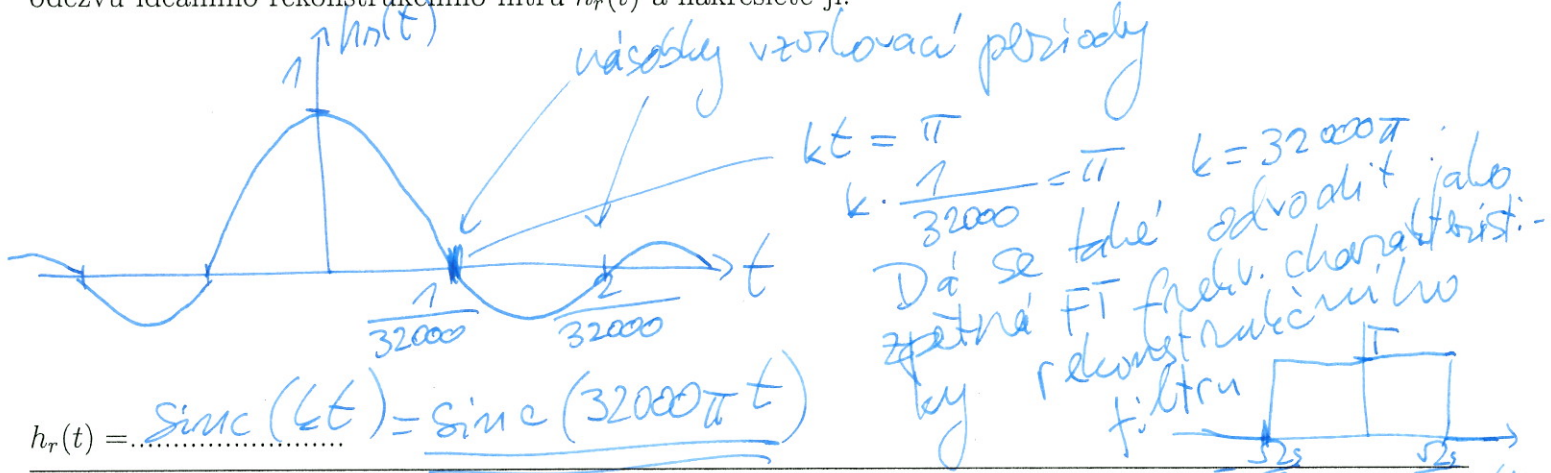 odezvu ideálního rekonstrukčního filtru h_r(t) a nakreslete ji.
hr(t)
1
násobky vzorkovací periody
kt = π
k · 1/32000 = π   k = 32000π
Dá se také odvodit jako
zpětná FT frekv. charakteristi-
ky rekonstrukčního
filtru
T
t
1/32000
2/32000
h_r(t) = sinc(kt) = sinc(32000π t)